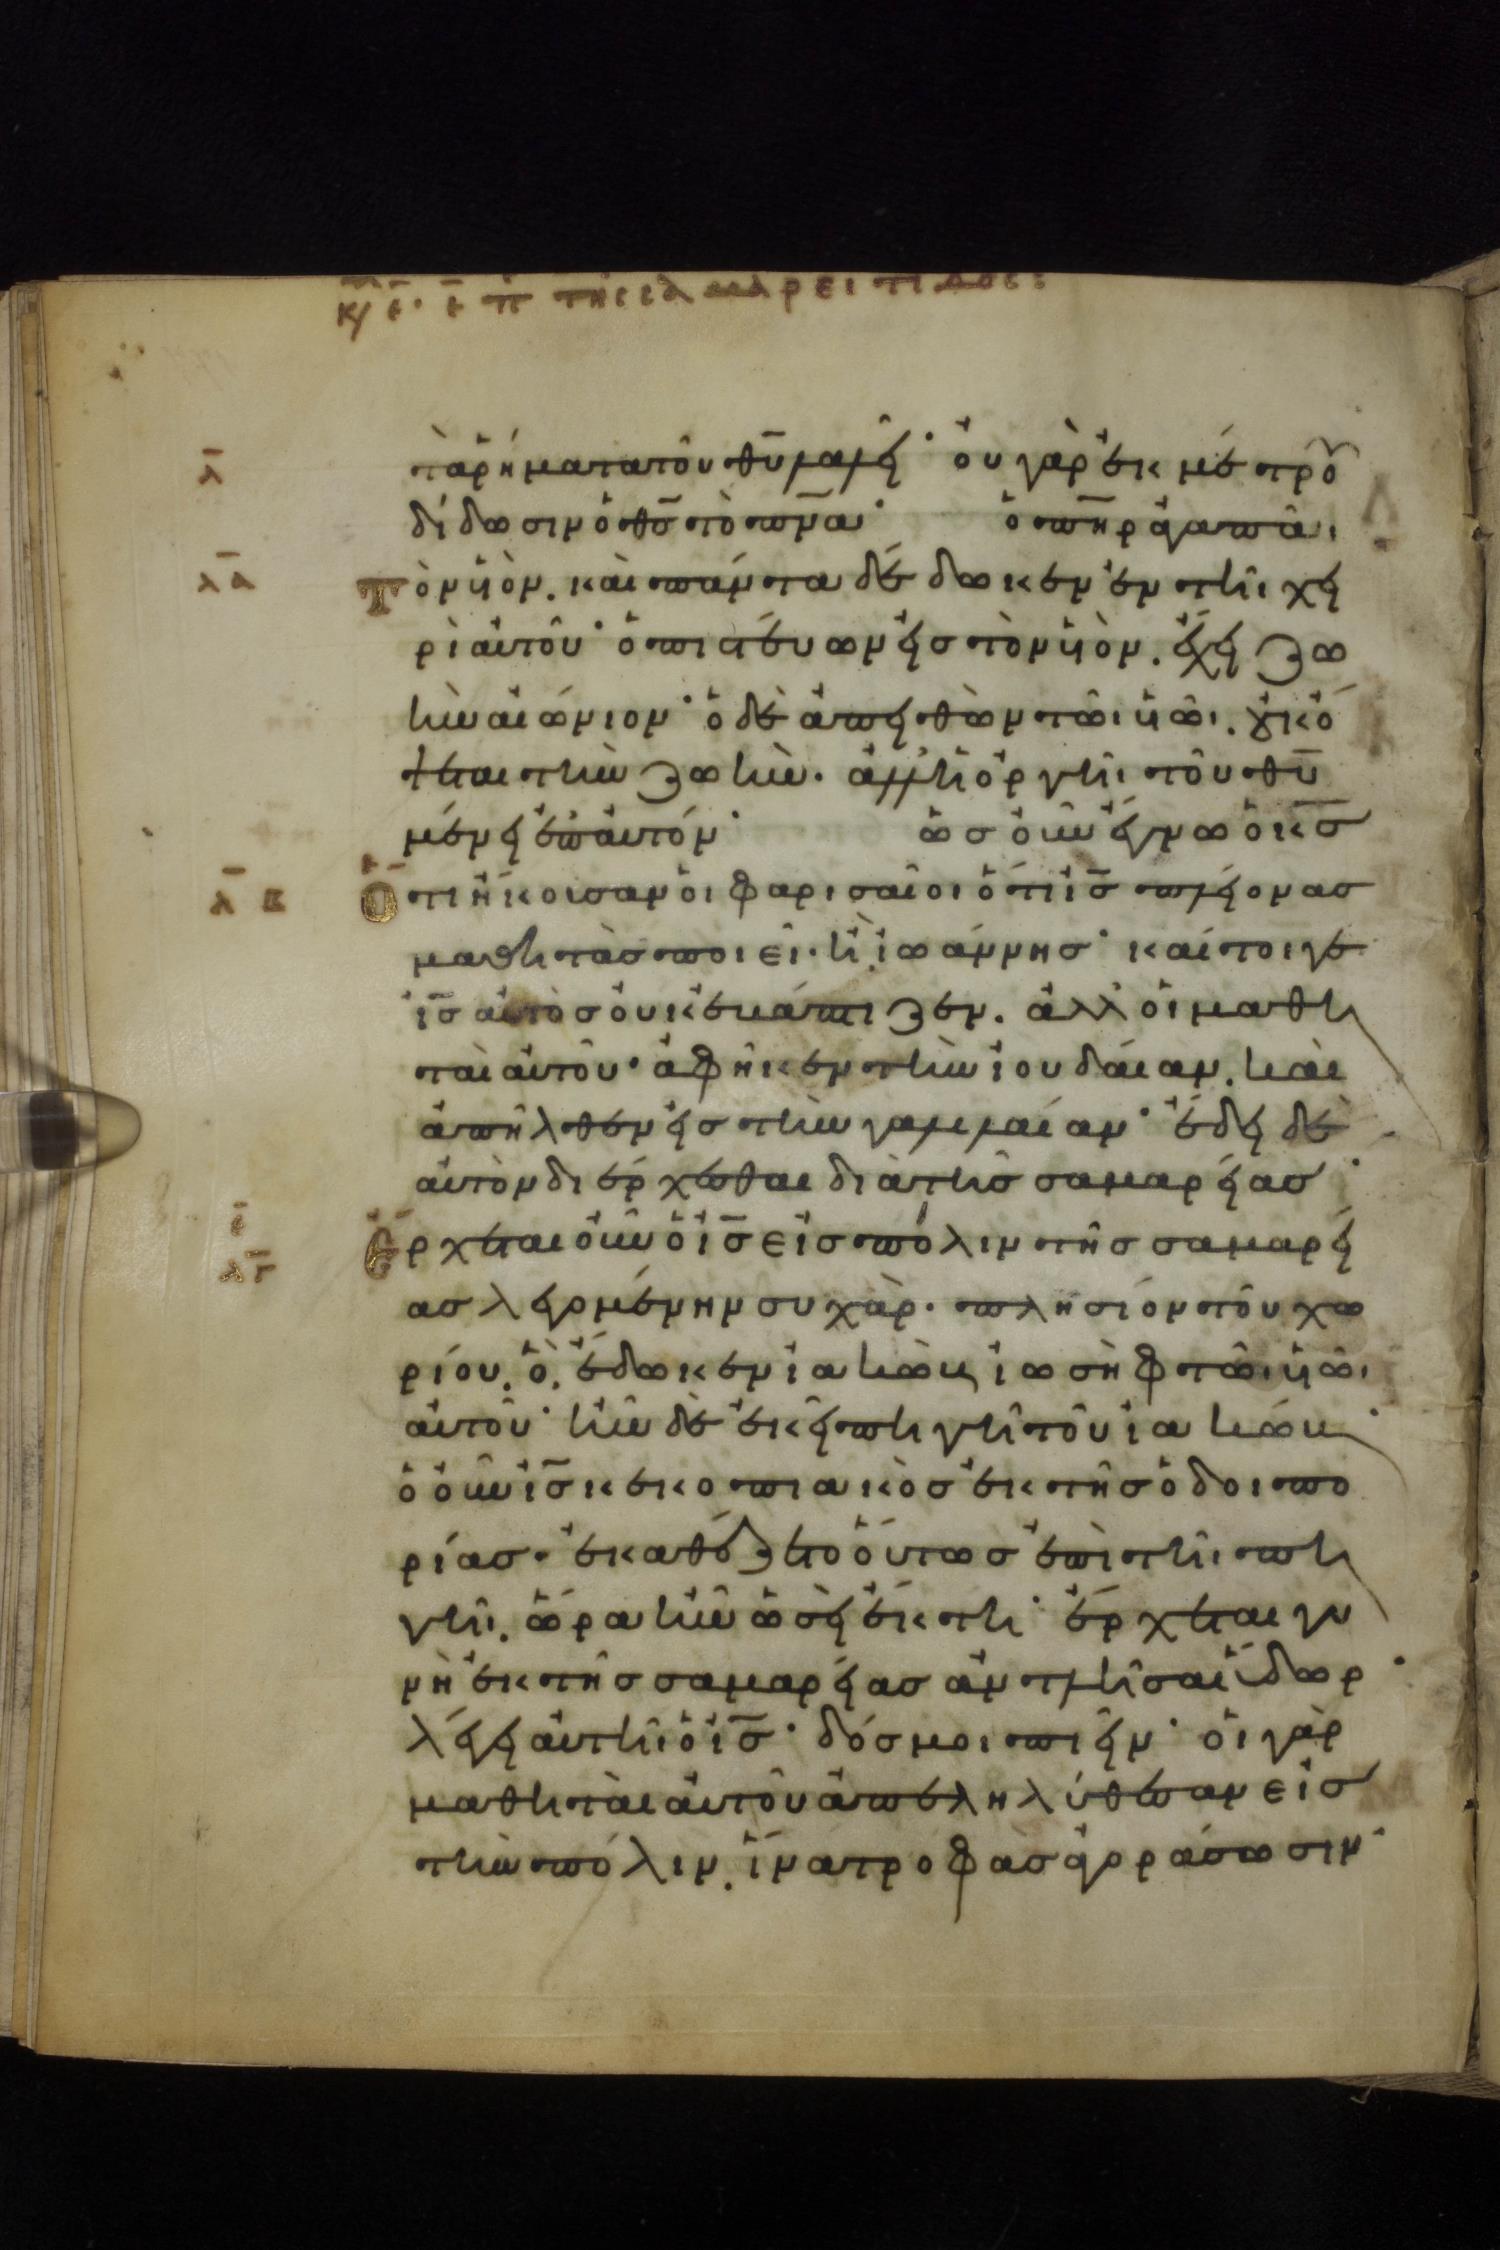 τῆς σαμαρείτιδος:
τὰ ῥήματα τοῦ θυ λαλεῖ· οὐ γὰρ ἐκ μέτρου
λ
δίδωσιν ὁ θς τὸ πνα· ὁ πηρ ἀγαπᾶι
λα
τὸν ὑὸν. καὶ πάντα δέδωκεν ἐν τῆι χει
ρὶ αὐτοῦ· ὁ πιστεύων εἰς τὸν ὑὸν. ἔχει ζω
ὴν αἰώνιον· ὁ δὲ ἀπειθῶν τῶι ὑῶι. οὐκ ὄ
ψεται τὴν ζωήν. ἀλλ' ἡ ὀργὴ τοῦ θυ
μένει ἐπ' αὐτόν· ὡς οὖν ἔγνω ὁ κς
λβ
ὅτι ἤκουσαν οἱ φαρισαῖοι ὅτι ις πλείονας
μαθητὰς ποιεῖ· ἢ ἰωάννης· καίτοιγε
ις αὐτὸς οὐκ ἐβάπτιζεν. ἀλλ' οἱ μαθη
ταὶ αὐτοῦ· ἀφῆκεν τὴν ἰουδαίαν. καὶ
ἀπῆλθεν εἰς τὴν γαλιλαίαν· ἔδει δὲ
αὐτὸν διέρχεσθαι διὰ τῆς σαμαρείας·
λγ
ἔρχεται οὖν ὁ ις εἰς πόλιν τῆς σαμαρεί
ας λεγομένην συχὰρ. πλησίον τοῦ χω
ρίου. ὃ. ἔδωκεν ἰακὼβ ἰωσὴφ τῶι ὑῶι
αὐτοῦ· ἦν δὲ ἐκεῖ πηγὴ τοῦ ἰακώβ·
ὁ οὖν ις κεκοπιακὸς ἐκ τῆς ὁδοιπο
ρίας. ἐκαθέζετο οὕτως ἐπὶ τῆι πη
γῆι. ὥρα ἦν ὡσεὶ ἕκτη· ἔρχεται γυ
νὴ ἐκ τῆς σαμαρείας ἀντλῆσαι ὕδωρ·
λέγει αὐτῆ ὁ ις· δός μοι πιεῖν· οἱ γὰρ
μαθηταὶ αὐτοῦ ἀπεληλύθεσαν εἰς
τὴν πόλιν. ἵνα τροφὰς ἀγοράσωσιν·